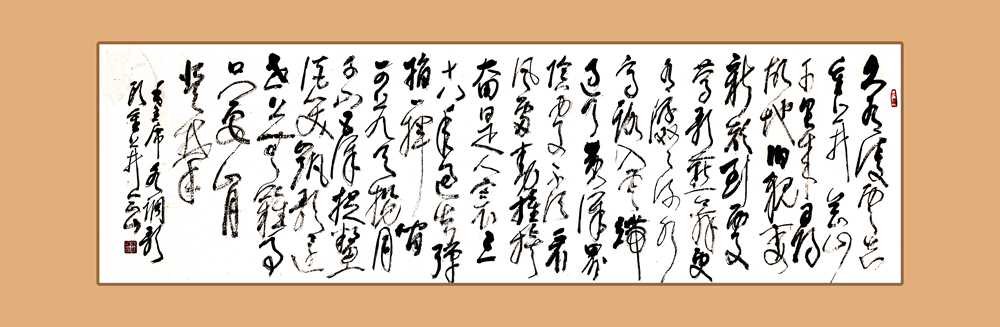 久有凌云志
重上井冈山
千里来寻
故地旧貌变
新颜到处
莺歌燕舞更
有潺潺流水
高路入云端
过了黄洋界
险处不须看
风雷动旌旗
奋是人寰三
十八年过去弹
指一挥间
可上九天揽月
可下五洋捉鳖
谈笑凯歌还
世上无难事
只要肯
登攀
毛主席水调歌
头重上井冈山